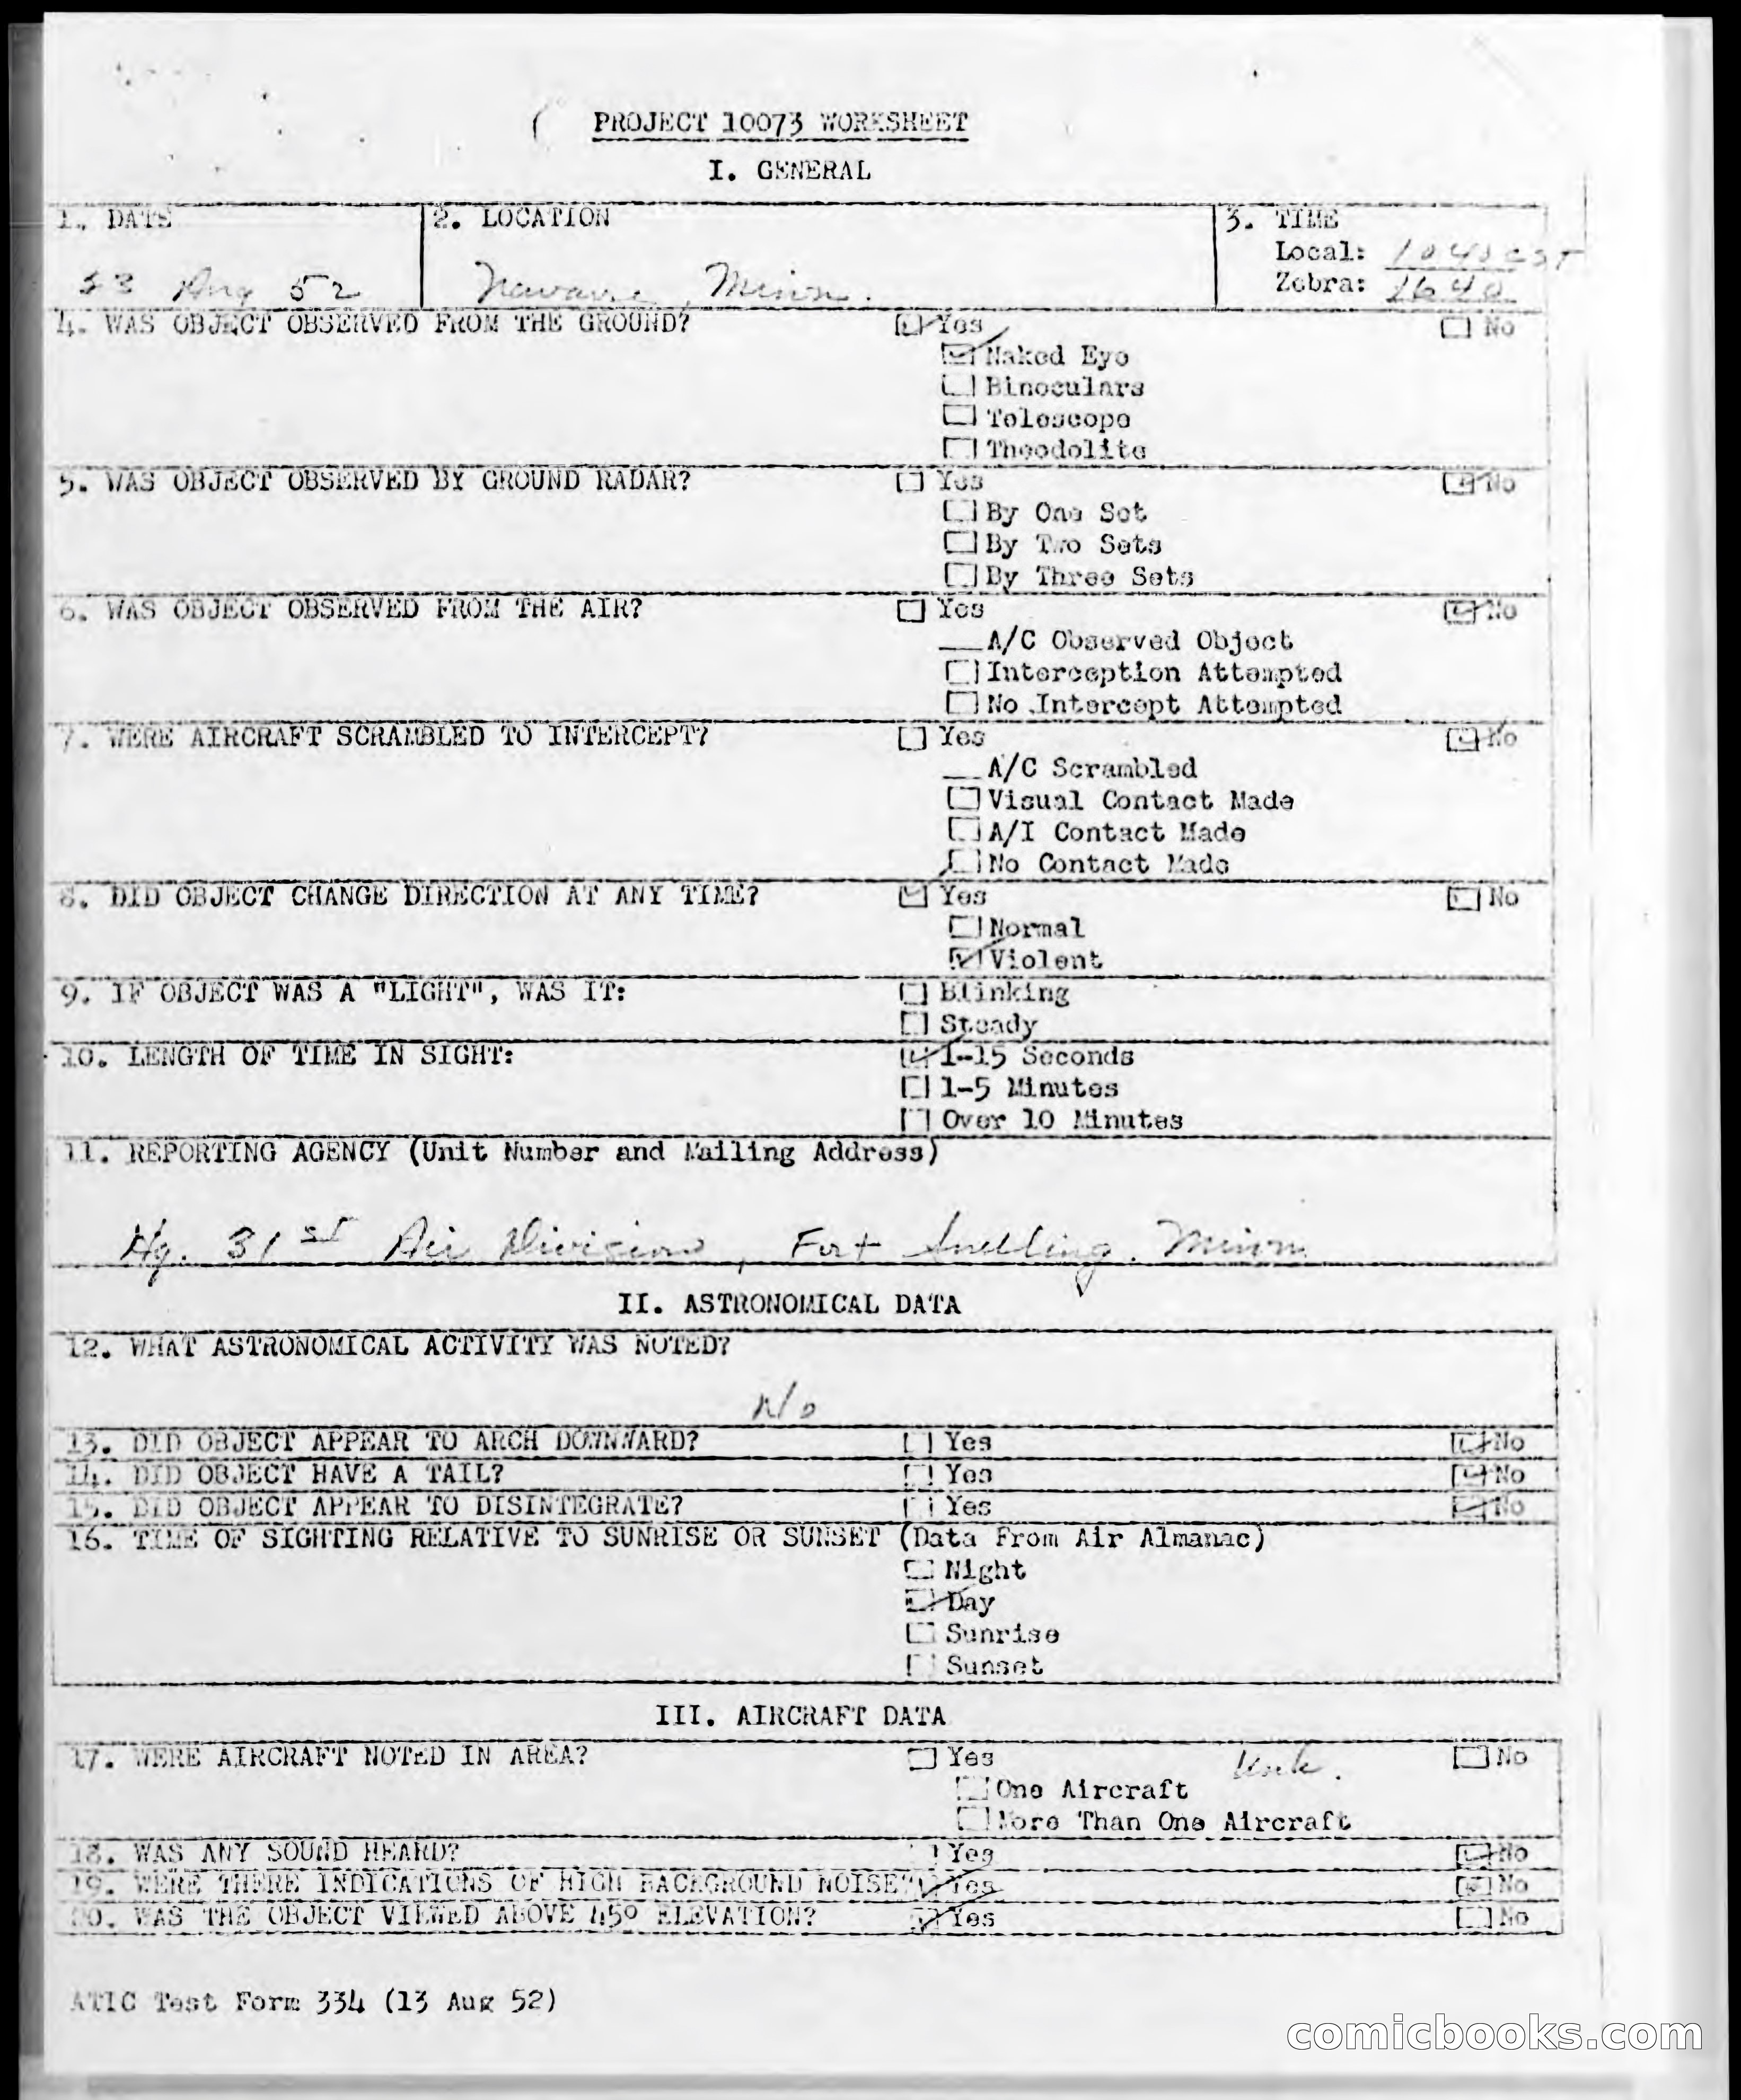 PROJECT 10073 WORKSHEET
I. GENERAL
1. DATE
2. LOCATION
3. TIME
Local: 1040 CST
Zebra: 1640
Aug 52
Navarre, Minn.
4. WAS OBJECT OBSERVED FROM THE GROUND? Yes No
Naked Eye
Binoculars
Telescope
Theodolite
5. WAS OBJECT OBSERVED BY GROUND RADAR? Yes No
By One Set
By Two Sets
By Three Sets
6. WAS OBJECT OBSERVED FROM THE AIR? Yes No
A/C Observed Object
Interception Attempted
No Intercept Attempted
7. WERE AIRCRAFT SCRAMBLED TO INTERCEPT? Yes No
A/C Scrambled
Visual Contact Made
A/I Contact Made
No Contact Made
8. DID OBJECT CHANGE DIRECTION AT ANY TIME? Yes No
Normal
Violent
9. IF OBJECT WAS A "LIGHT", WAS IT: Blinking
Steady
10. LENGTH OF TIME IN SIGHT: 1-15 Seconds
1-5 Minutes
Over 10 Minutes
11. REPORTING AGENCY (Unit Number and Mailing Address)
Hq. 31st Air Division, Fort Snelling, Minn
II. ASTRONOMICAL DATA
12. WHAT ASTRONOMICAL ACTIVITY WAS NOTED?
13. DID OBJECT APPEAR TO ARCH DOWNWARD? Yes No
14. DID OBJECT HAVE A TAIL? Yes No
15. DID OBJECT APPEAR TO DISINTEGRATE? Yes No
16. TIME OF SIGHTING RELATIVE TO SUNRISE OR SUNSET (Data From Air Almanac)
Night
Day
Sunrise
Sunset
III. AIRCRAFT DATA
17. WERE AIRCRAFT NOTED IN AREA? Yes Unk. No
One Aircraft
More Than One Aircraft
18. WAS ANY SOUND HEARD? Yes No
19. WERE THERE INDICATIONS OF HIGH BACKGROUND NOISE? Yes No
20. WAS THE OBJECT VIEWED ABOVE 45º ELEVATION? Yes No
ATIC Test Form 334 (13 Aug 52)
comicbooks.com